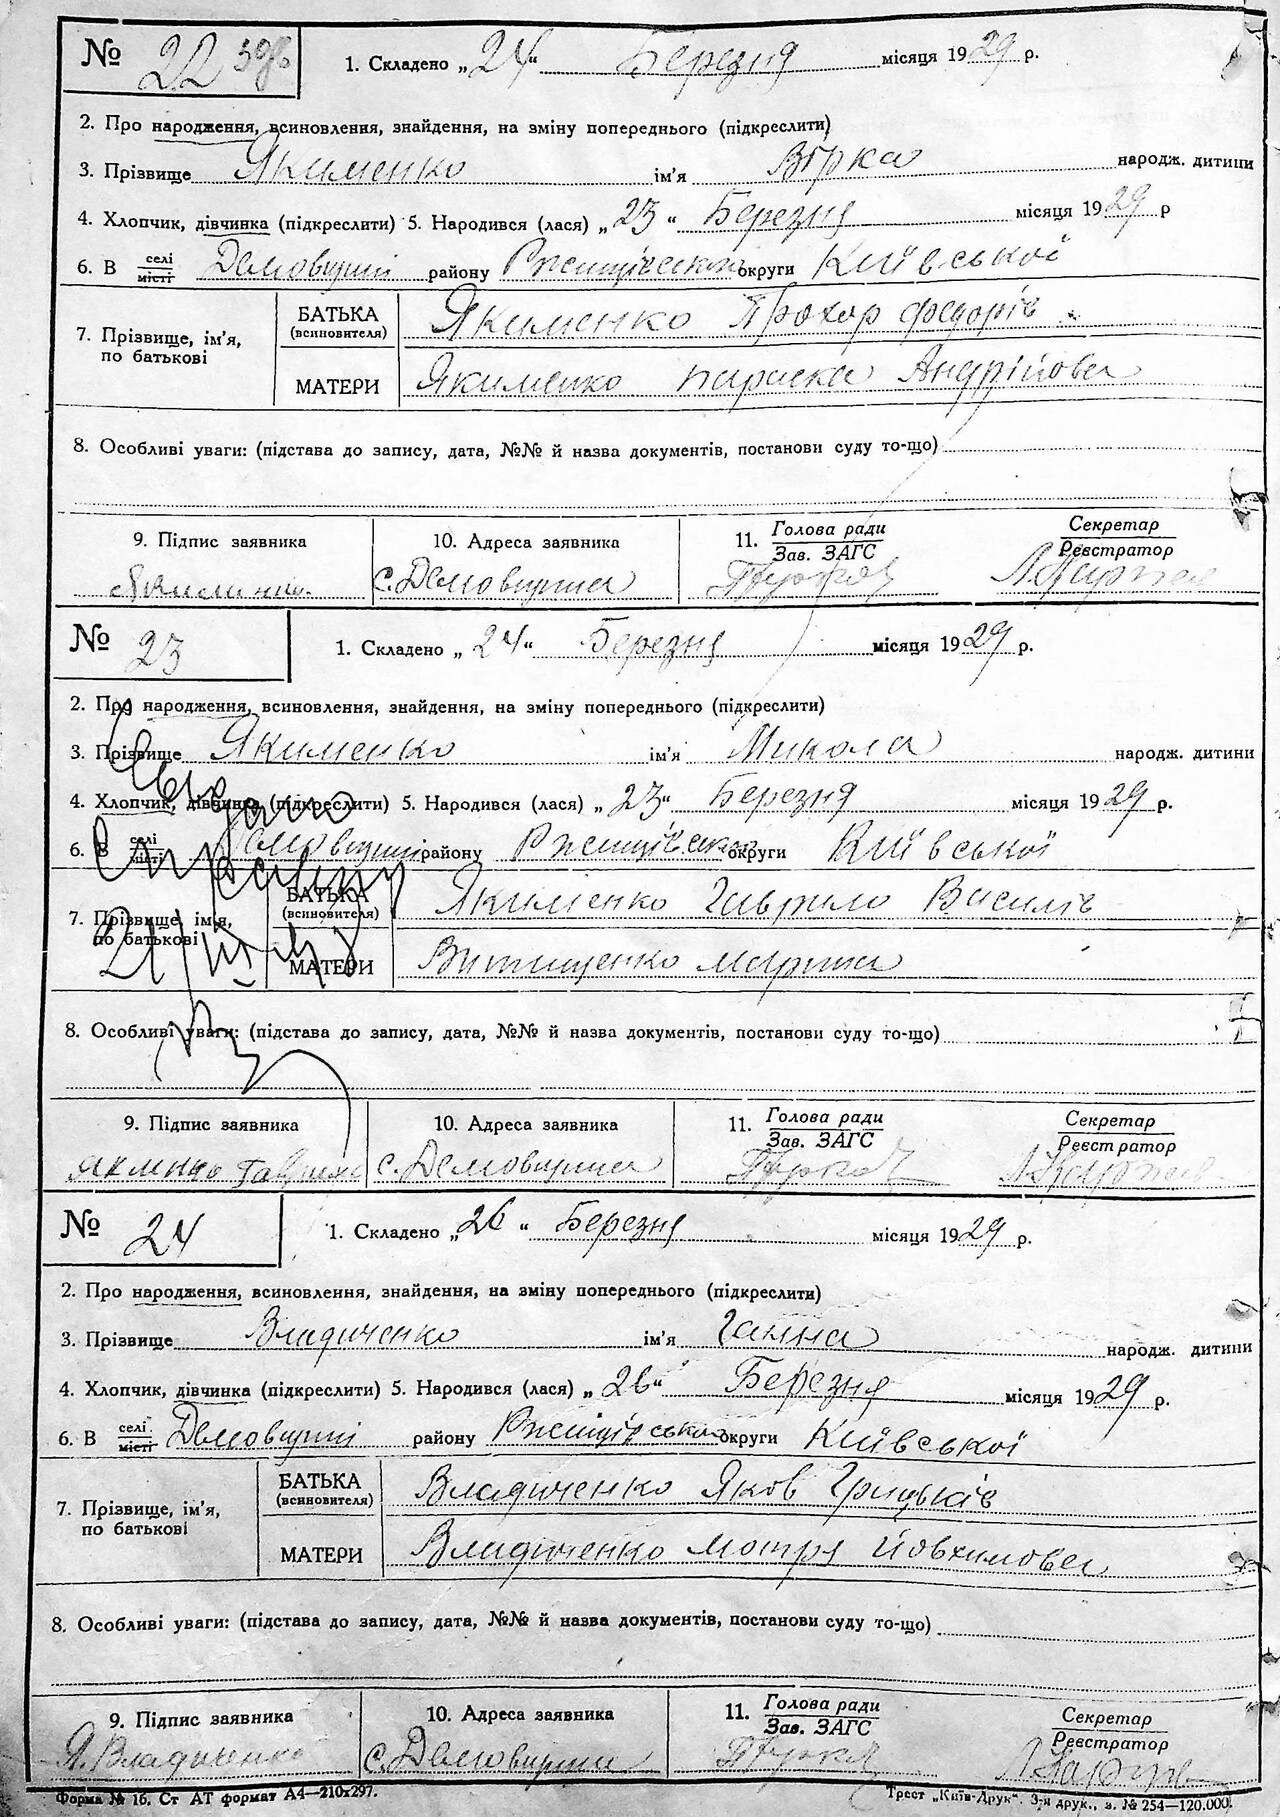 № 22 1. Складено „24“ Березня місяця 1929 р.
2. Про народження, всиновлення, знайдення, на зміну попереднього (підкреслити)
3. Прізвище Якименко ім'я Вірка народж. дитини
4. Хлопчик, дівчинка (підкреслити) 5. Народився (лася) „23“ Березня місяця 1929 р
6. В селі місті Демовщині району Ржищівськ округи Київської
7. Прізвище, ім'я, по батькові
БАТЬКА (всиновителя) Якименко Прохор Федорів
МАТЕРИ Якименко Параска Андрійова
8. Особливі уваги: (підстава до запису, дата, №№ й назва документів, постанови суду то-що)
9. Підпис заявника 10. Адреса заявника 11. Голова ради Зав. ЗАГС Секретар Реєстратор
с. Демовщина
№ 23 1. Складено „24“ Березня місяця 1929 р.
2. Про народження, всиновлення, знайдення, на зміну попереднього (підкреслити)
3. Прізвище Якименко ім'я Микола народж. дитини
4. Хлопчик, дівчинка (підкреслити) 5. Народився (лася) „23“ Березня місяця 1929 р.
6. В селі місті Демовщині району Ржищівськ округи Київської
7. Прізвище, ім'я, по батькові
БАТЬКА (всиновителя) Якименко Гаврило Василів
МАТЕРИ Марина
8. Особливі уваги: (підстава до запису, дата, №№ й назва документів, постанови суду то-що)
9. Підпис заявника 10. Адреса заявника 11. Голова ради Зав. ЗАГС Секретар Реєстратор
с. Демовщина
№ 24 1. Складено „26“ Березня місяця 1929 р.
2. Про народження, всиновлення, знайдення, на зміну попереднього (підкреслити)
3. Прізвище Владиченко ім'я Ганна народж. дитини
4. Хлопчик, дівчинка (підкреслити) 5. Народився (лася) „26“ Березня місяця 1929 р.
6. В селі місті Демовщині району Ржищівськ округи Київської
7. Прізвище, ім'я, по батькові
БАТЬКА (всиновителя) Владиченко Яков Грицьків
МАТЕРИ Владиченко Мотря Йовхимова
8. Особливі уваги: (підстава до запису, дата, №№ й назва документів, постанови суду то-що)
9. Підпис заявника 10. Адреса заявника 11. Голова ради Зав. ЗАГС Секретар Реєстратор
Я. Владиченко с. Демовщина
Форма № 16. Ст АТ формат А4—210х297. Трест „Київ-Друк“. 3-я друк., з. № 254—120.000.